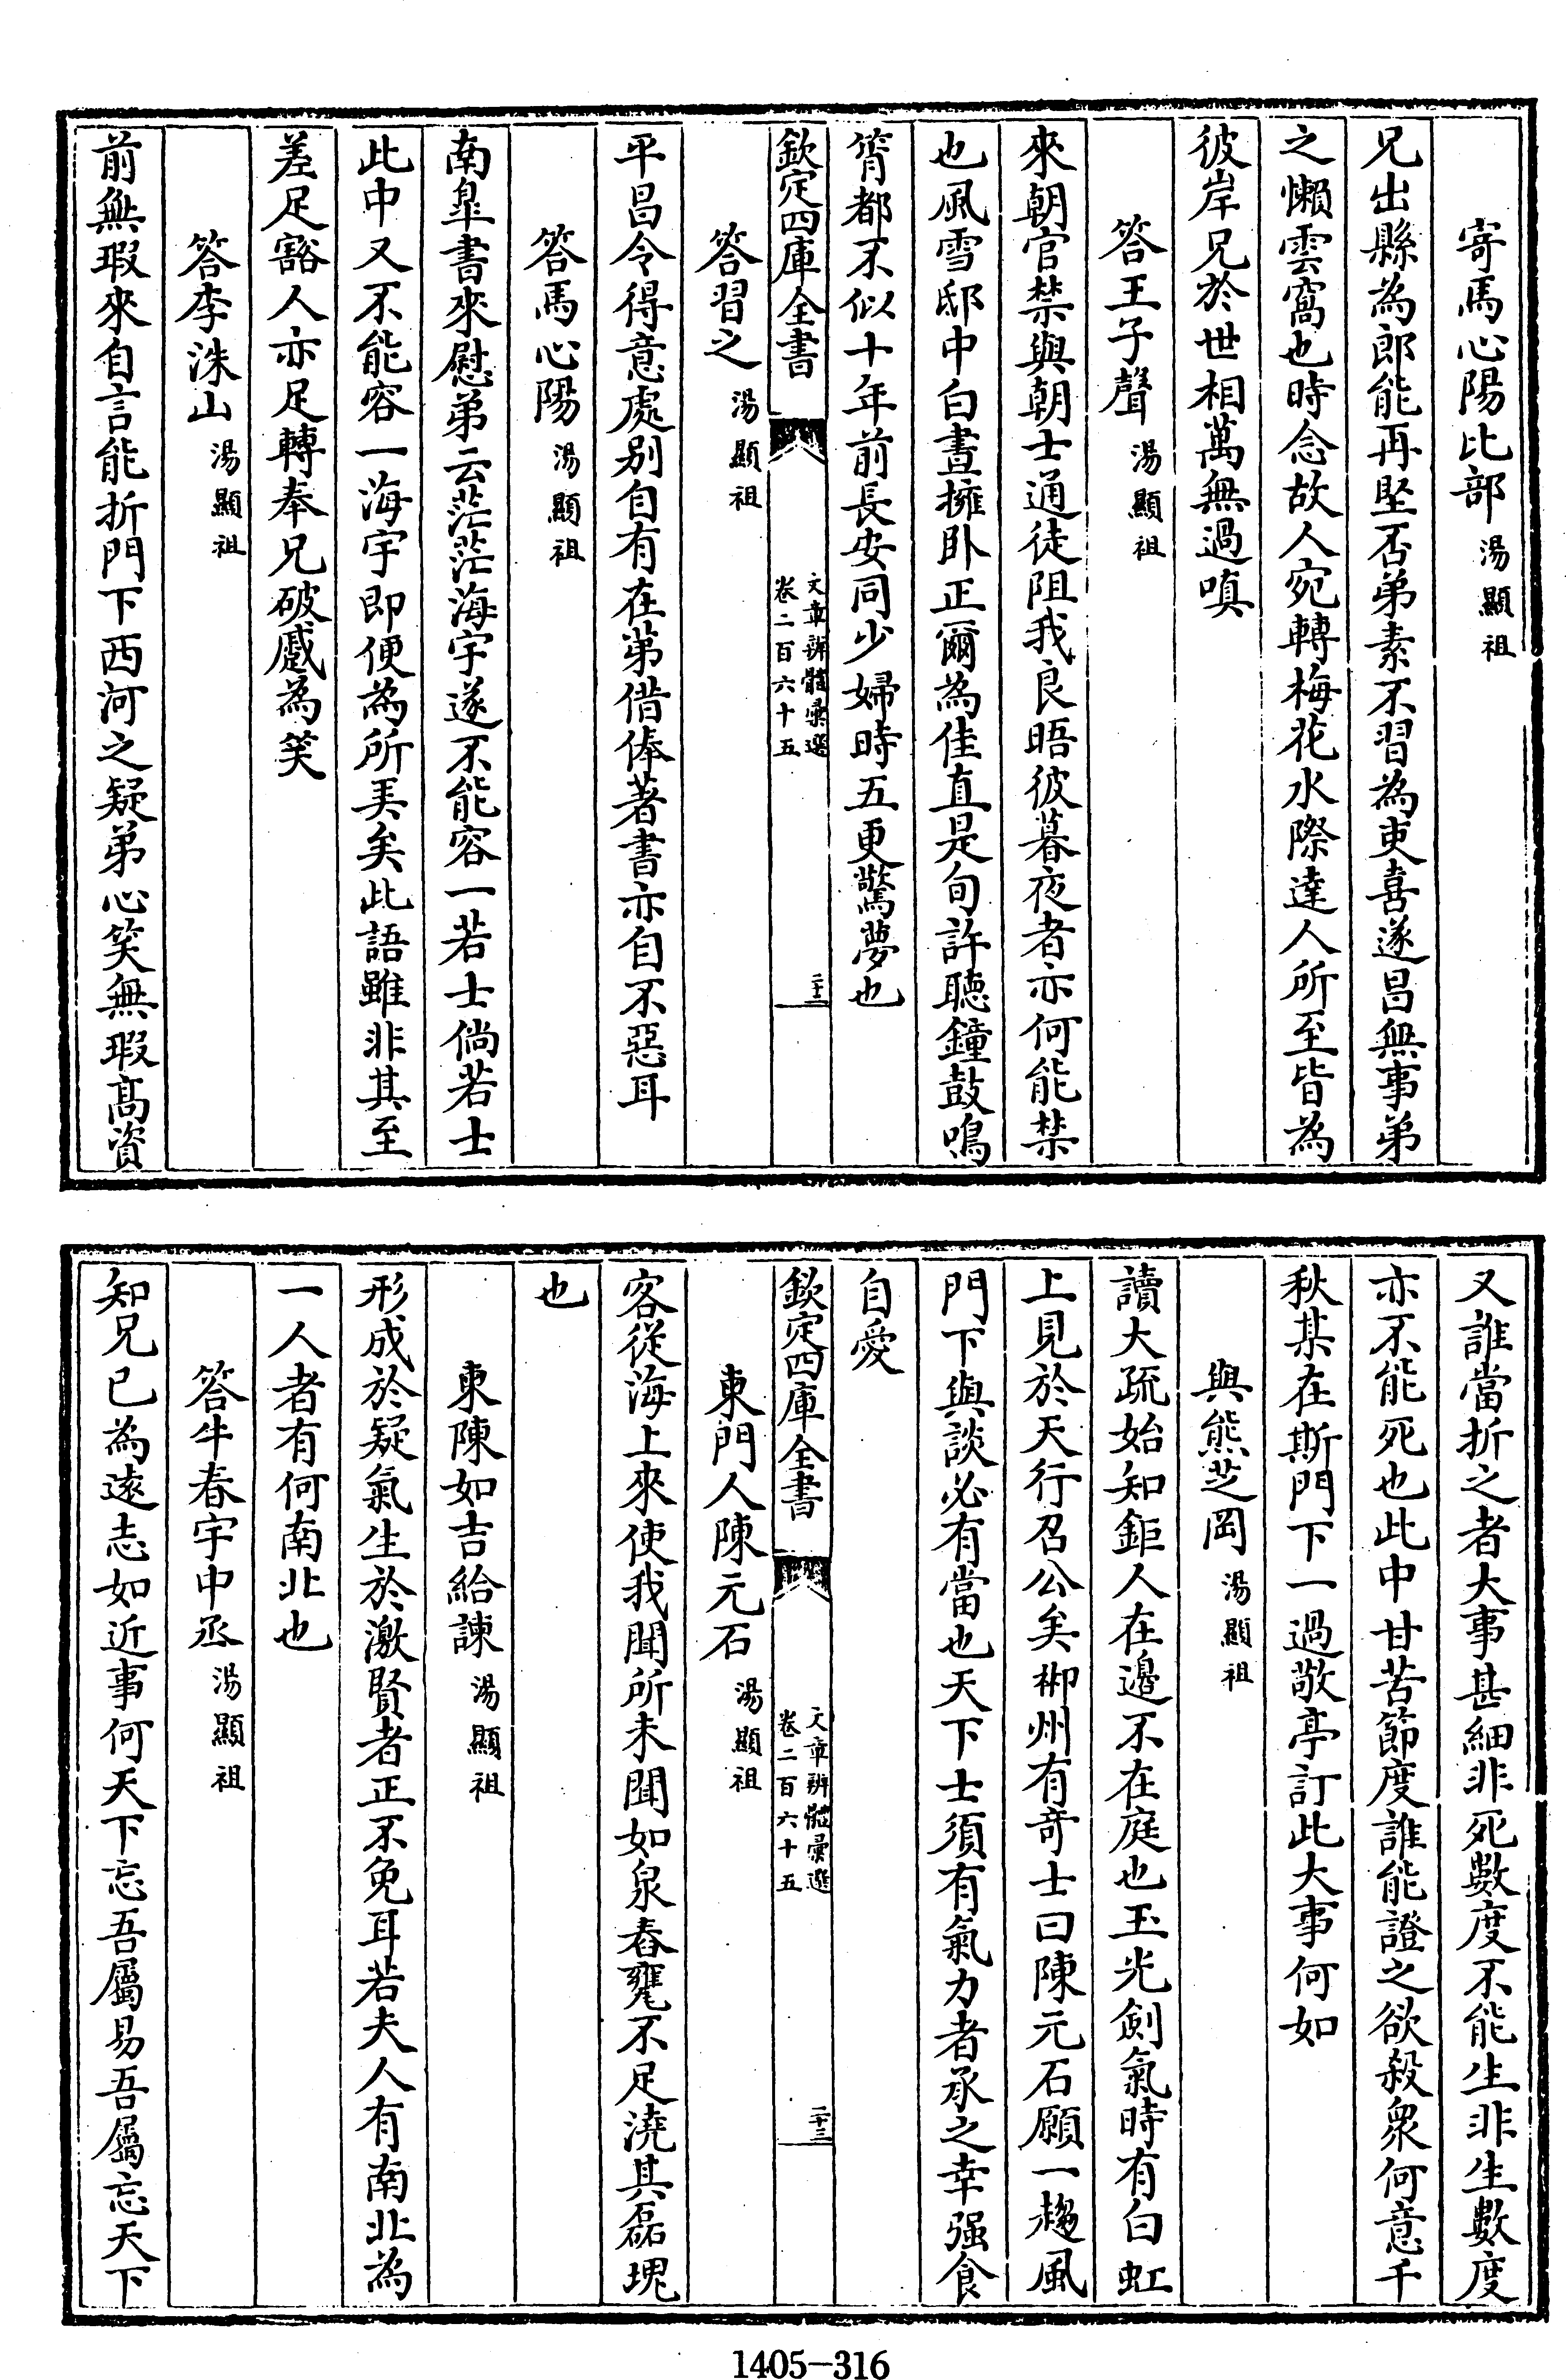 寄馬心陽比部湯顯祖
兄出縣為郎能再堅否弟素不習為吏喜遂昌無事弟
之懶雲窩也時念故人宛轉梅花水際達人所至皆為
彼岸兄於世相萬無過嗔
答王子聲湯顯祖
來朝官禁與朝士通徒阻我良晤彼暮夜者亦何能禁
也風雪邸中白晝擁卧正爾為佳直是旬許聽鐘鼓鳴
箵都不似十年前長安同少婦時五更驚夢也
欽定四庫全書
文章辨體彙選
卷二百六十五
二十二
答習之湯顯祖
平昌令得意處别自有在第借俸著書亦自不惡耳
答馬心陽湯顯祖
南臯書來慰弟云茫茫海宇遂不能容一若士倘若士
此中又不能容一海宇即便為所美矣此語雖非其至
差足豁人亦足轉奉兄破慼為笑
答李洙山湯顯祖
前無瑕來自言能折門下西河之疑弟心笑無瑕髙資
又誰當折之者大事甚細非死數度不能生非生數度
亦不能死也此中甘苦節度誰能證之欲殺衆何意千
秋某在斯門下一過敬亭訂此大事何如
與熊芝岡湯顯祖
讀大疏始知鉅人在邉不在庭也玉光劍氣時有白虹
上見於天行召公矣郴州有竒士曰陳元石願一趨風
門下與談必有當也天下士須有氣力者承之幸强食
自愛
欽定四庫全書
文章辨體彙選
卷二百六十五
二十三
柬門人陳元石湯顯祖
客從海上來使我聞所未聞如泉舂甕不足澆其磊瑰
也
柬陳如吉給諫湯顯祖
形成於疑氣生於激賢者正不免耳若夫人有南北為
一人者有何南北也
答牛春宇中丞湯顯祖
知兄已為逺志如近事何天下忘吾屬易吾屬忘天下
1405-316